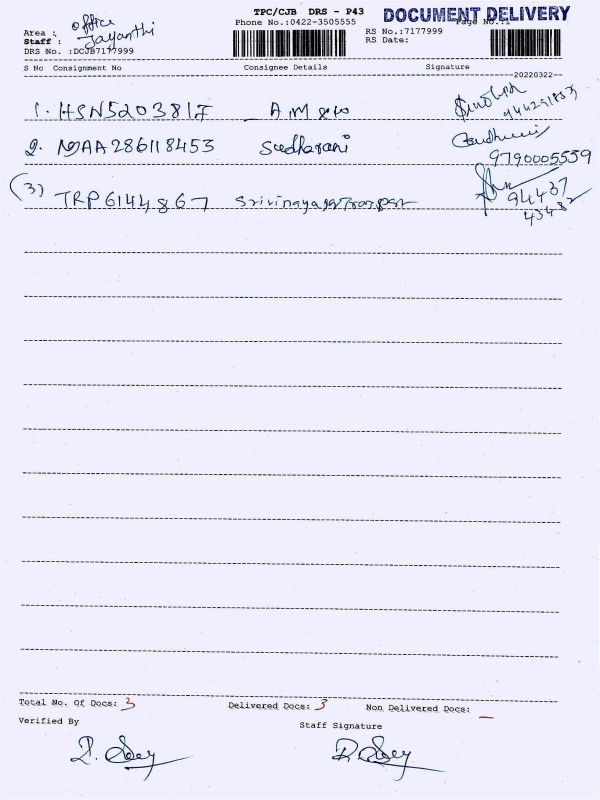 TPC/CJB DRS - P43 DOCUMENT DELIVERY
Phone No.:0422-3505555 Page No.:1
Area : office
Staff : Jayanthi
DRS No. :DCJB7177999
RS No.:7177999
RS Date:
S No Consignment No Consignee Details Signature
20220322
1. HSN5203817 A M &
2. MAA286118453 Sudharani
9790005559
(3) TRP6144867
94437
43482
Total No. Of Docs: 3 Delivered Docs: 3 Non Delivered Docs: —
Verified By Staff Signature